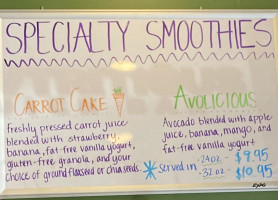 SPECIALTY SMOOTHIES
CARROT CAKE
freshly pressed carrot juice
blended with strawberry,
banana, fat-free vanilla yogurt,
gluten-free granola, and your
choice of ground flaxseed or chia seeds.
AVOLICIOUS
Avocado blended with apple
juice, banana, mango, and
fat-free vanilla yogurt
Served in -24oz - $9.95
-32oz - $10.95